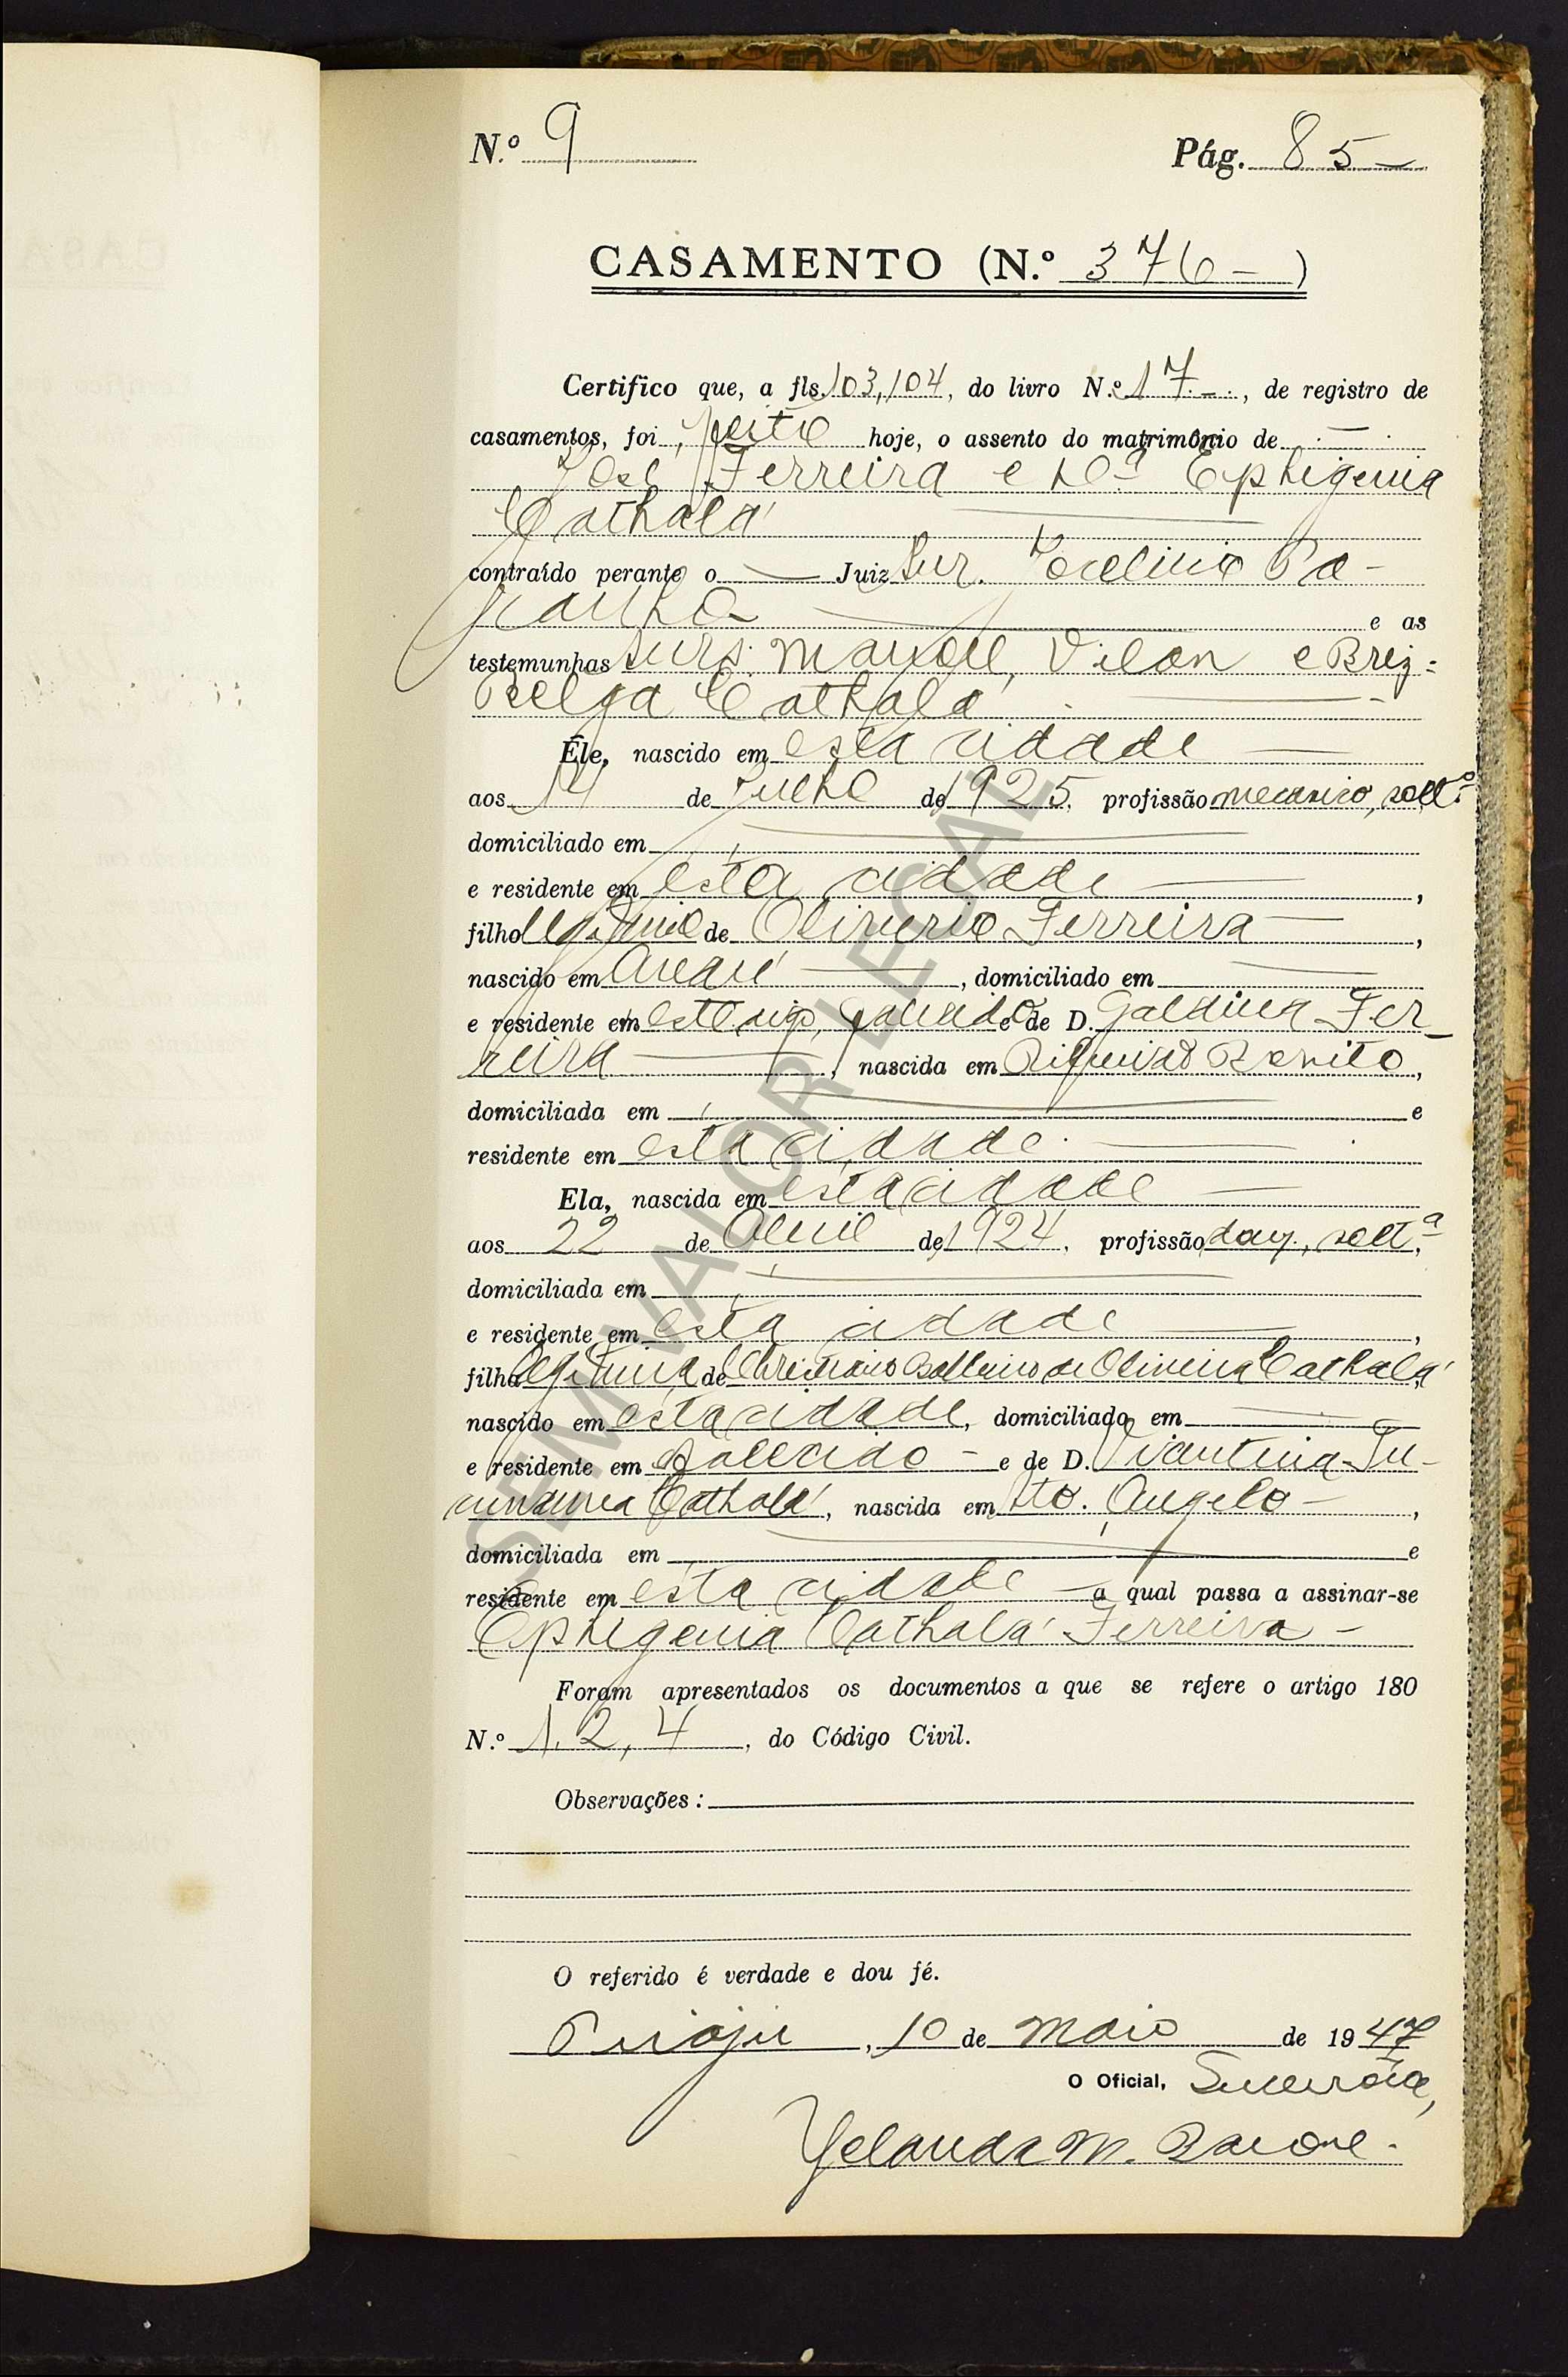 N.º 9 Pág. 85
CASAMENTO (N.º 376 - )
Certifico que, a fls. 103, 104, do livro N.º 17 -, de registro de
casamentos, foi feito hoje, o assento do matrimônio de
José Ferreira e D.ª Ephigenia
Cathalá
contraído perante o Juiz Snr. Jocelino Pa-
ganho e as
testemunhas Snrs. Manoel Vilon e Briz-
belga Cathalá
Êle, nascido em esta cidade
aos 14 de Julho de 1925, profissão mecanico, solt.º
domiciliado em
e residente em esta cidade,
filho legitimo de Oliverio Ferreira,
nascido em Avaré, domiciliado em
e residente em falecido e de D. Galdina Fer-
reira, nascida em Bonito,
domiciliada em e
residente em esta cidade.
Ela, nascida em esta cidade
aos 22 de Abril de 1924, profissão dom., solt.ª
domiciliada em
e residente em esta cidade,
filha legitima de de Oliveira Cathalá
nascido em esta cidade, domiciliado em
e residente em falecido - e de D.
Cathalá, nascida em Sto. Angelo -,
domiciliada em e
residente em esta cidade a qual passa a assinar-se
Ephigenia Cathalá Ferreira -
Foram apresentados os documentos a que se refere o artigo 180
N.º 1, 2, 4, do Código Civil.
Observações:
O referido é verdade e dou fé.
Piraju, 10 de Maio de 1947
O Oficial,
Yolanda M.
SEM VALOR LEGAL